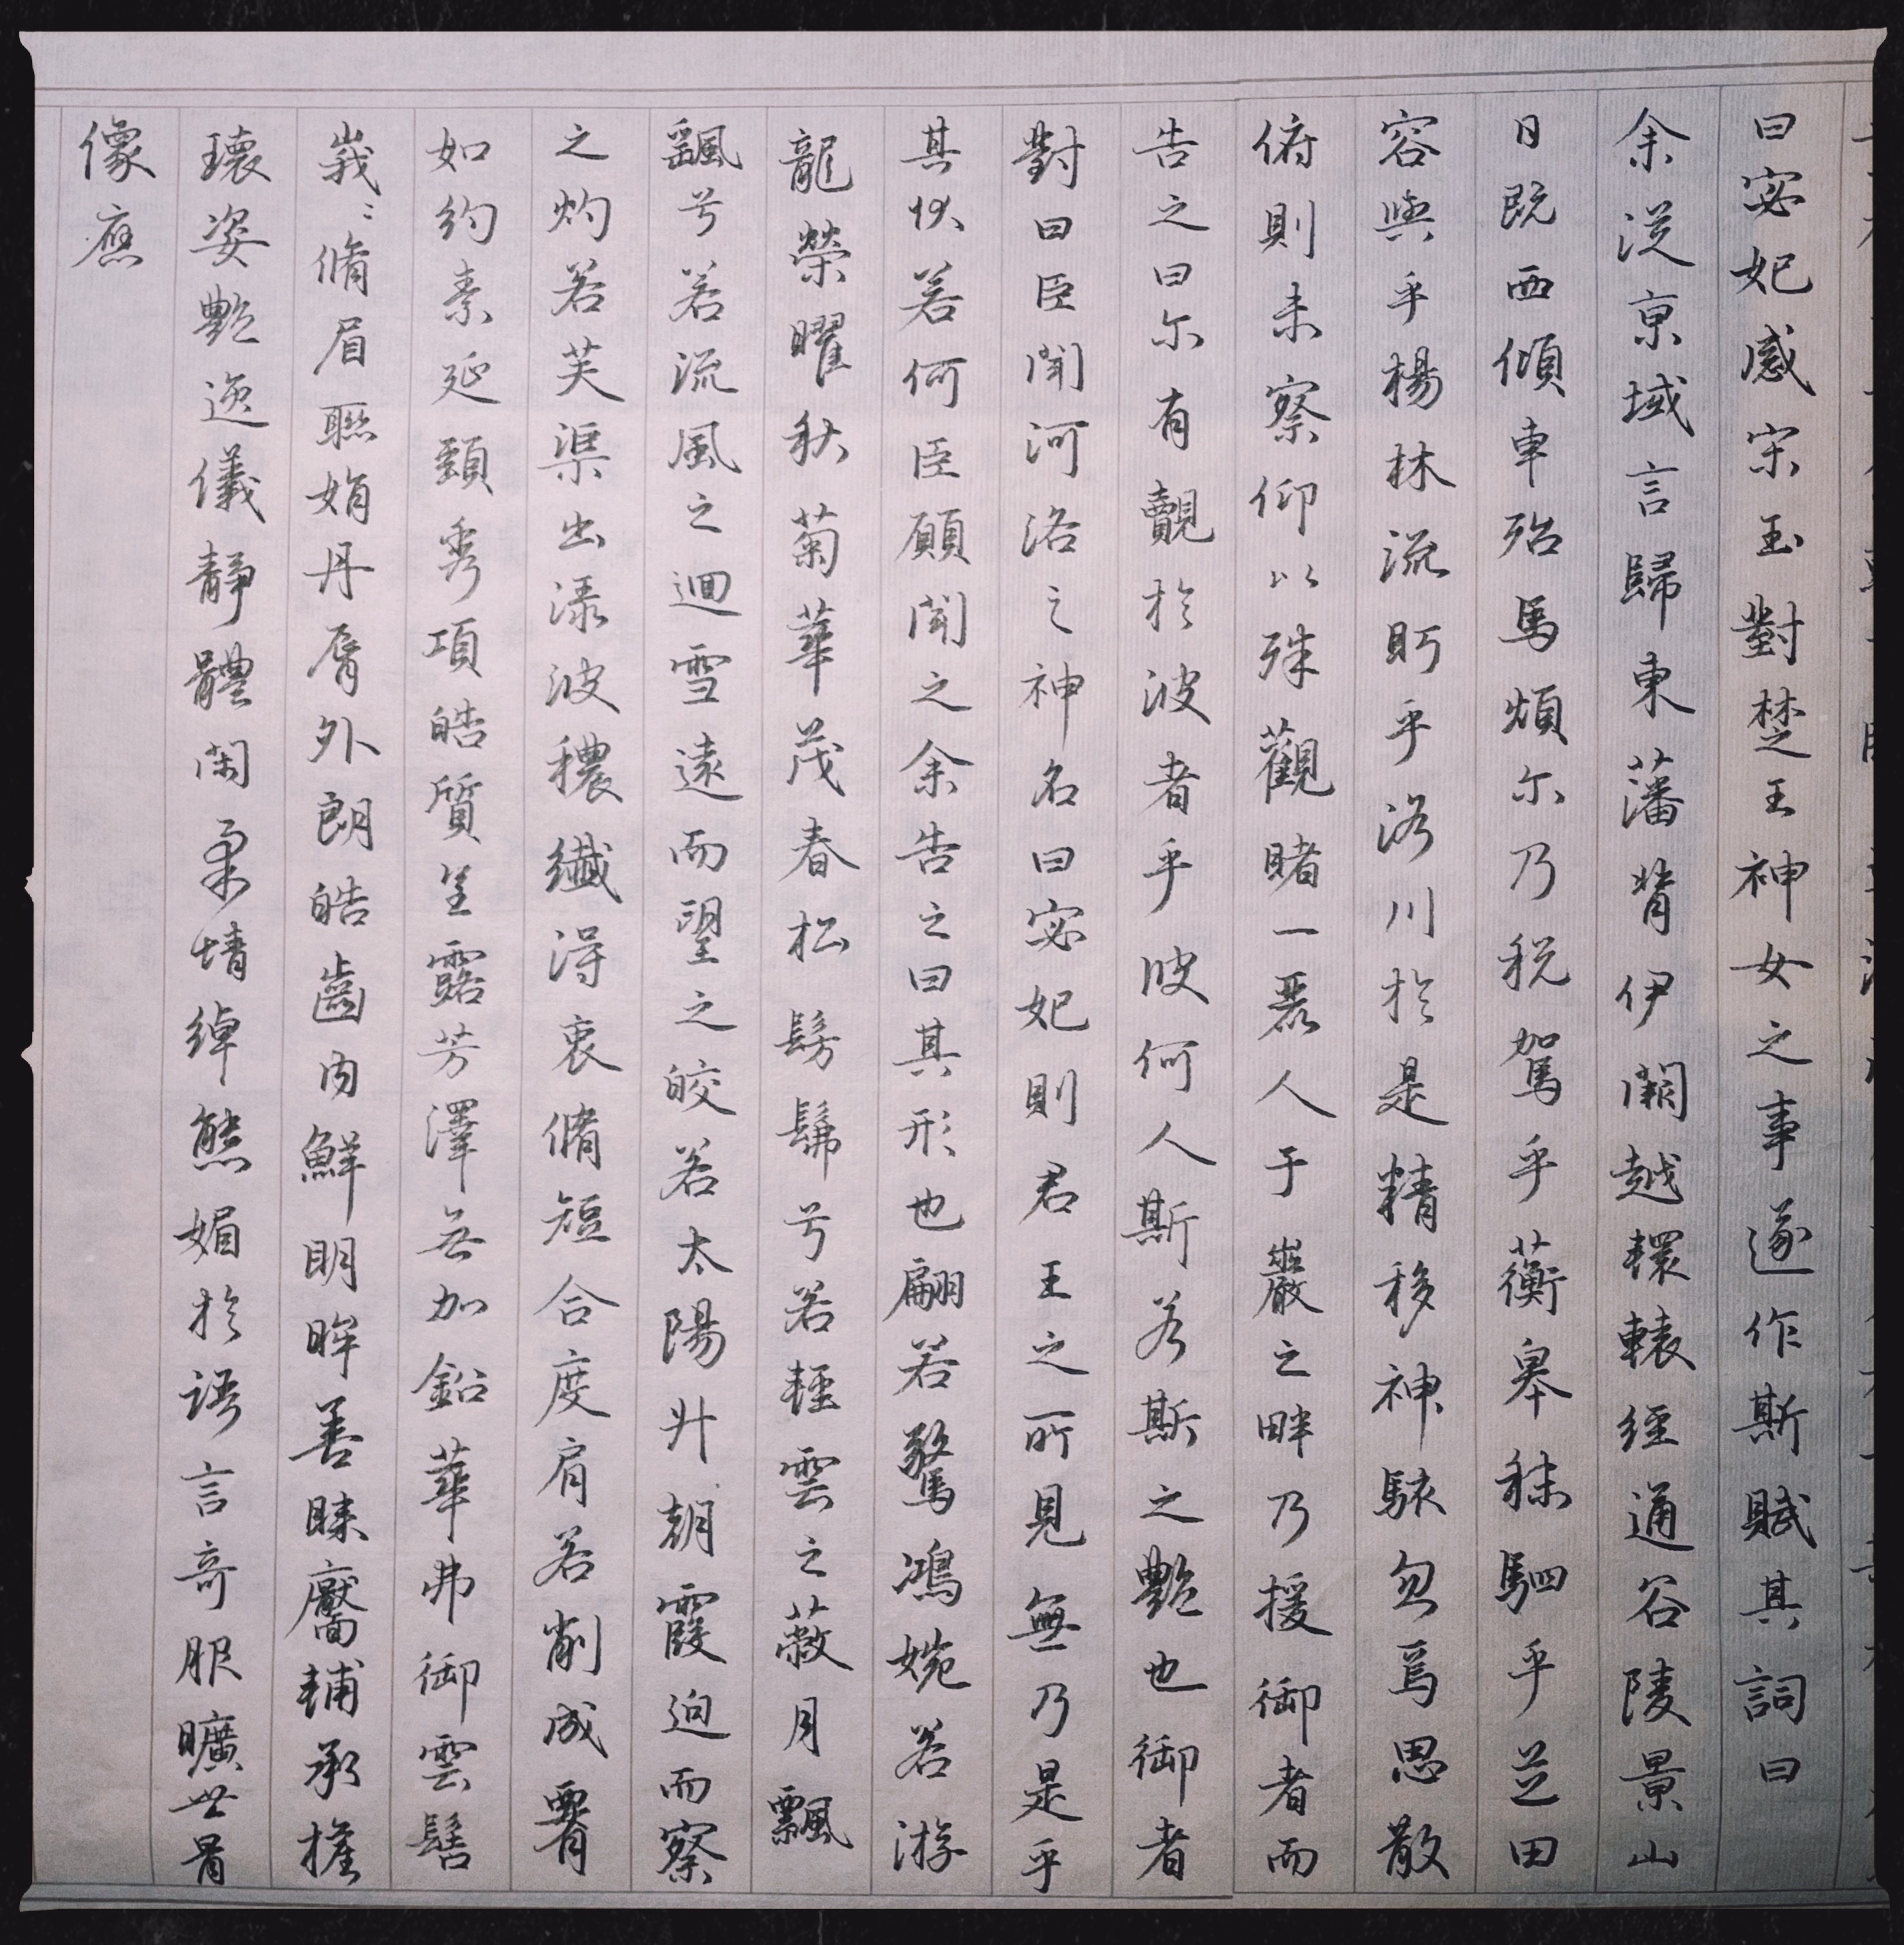 曰宓妃感宋玉對楚王神女之事遂作斯賦其詞曰
余從京域言歸東藩背伊闕越轘轅經通谷陵景山
日既西傾車殆馬煩尓乃税駕乎蘅皋秣駟乎芝田
容與乎楊林流眄乎洛川於是精移神駭忽焉思散
俯則未察仰以殊觀睹一麗人于巖之畔乃援御者而
告之曰尔有覿於彼者乎彼何人斯若斯之艷也御者
對曰臣聞河洛之神名曰宓妃則君王之所見無乃是乎
其狀若何臣願聞之余告之曰其形也翩若驚鴻婉若游
龍榮曜秋菊華茂春松髣髴兮若輕雲之蔽月飄
飖兮若流風之迴雪遠而望之皎若太陽升朝霞迫而察
之灼若芙渠出渌波穠纖得衷脩短合度肩若削成署
如約素延頸秀項皓質呈露芳澤無加鉛華弗御雲髻
峩〻脩眉聯娟丹脣外朗皓齒内鮮明眸善睞靨輔承權
瓌姿艷逸儀靜體閑柔情綽態媚於語言奇服曠世骨
像應